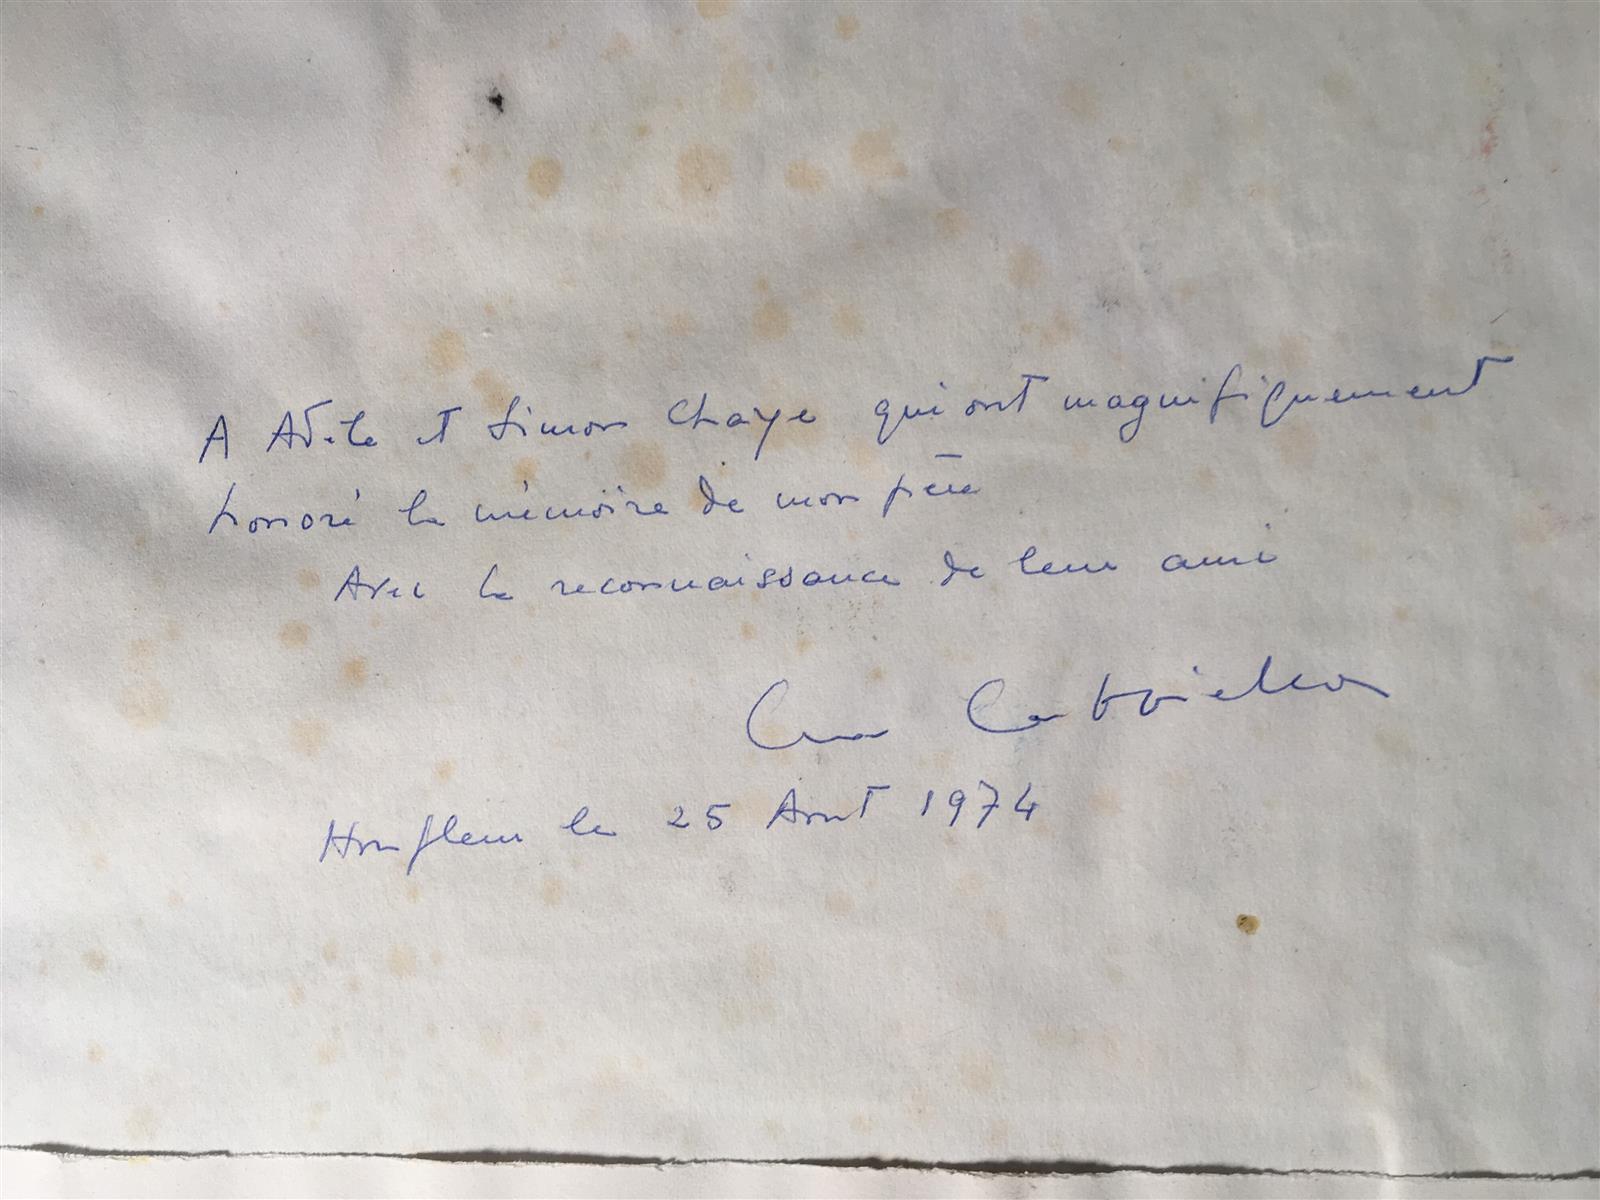 A Adèle et Simon Chaye qui ont magnifiquement
honoré la mémoire de mon père
Avec la reconnaissance de leur ami
Honfleur le 25 Aout 1974